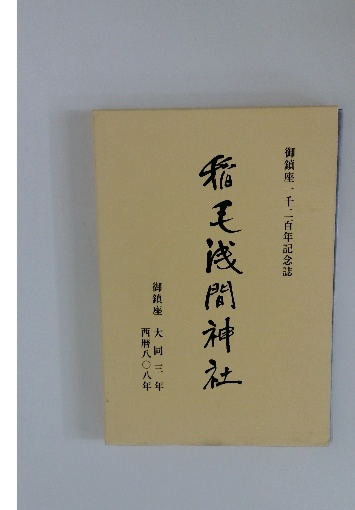 御鎮座一千二百年記念誌
稲毛浅間神社
御鎮座 大同三年
西暦八〇八年